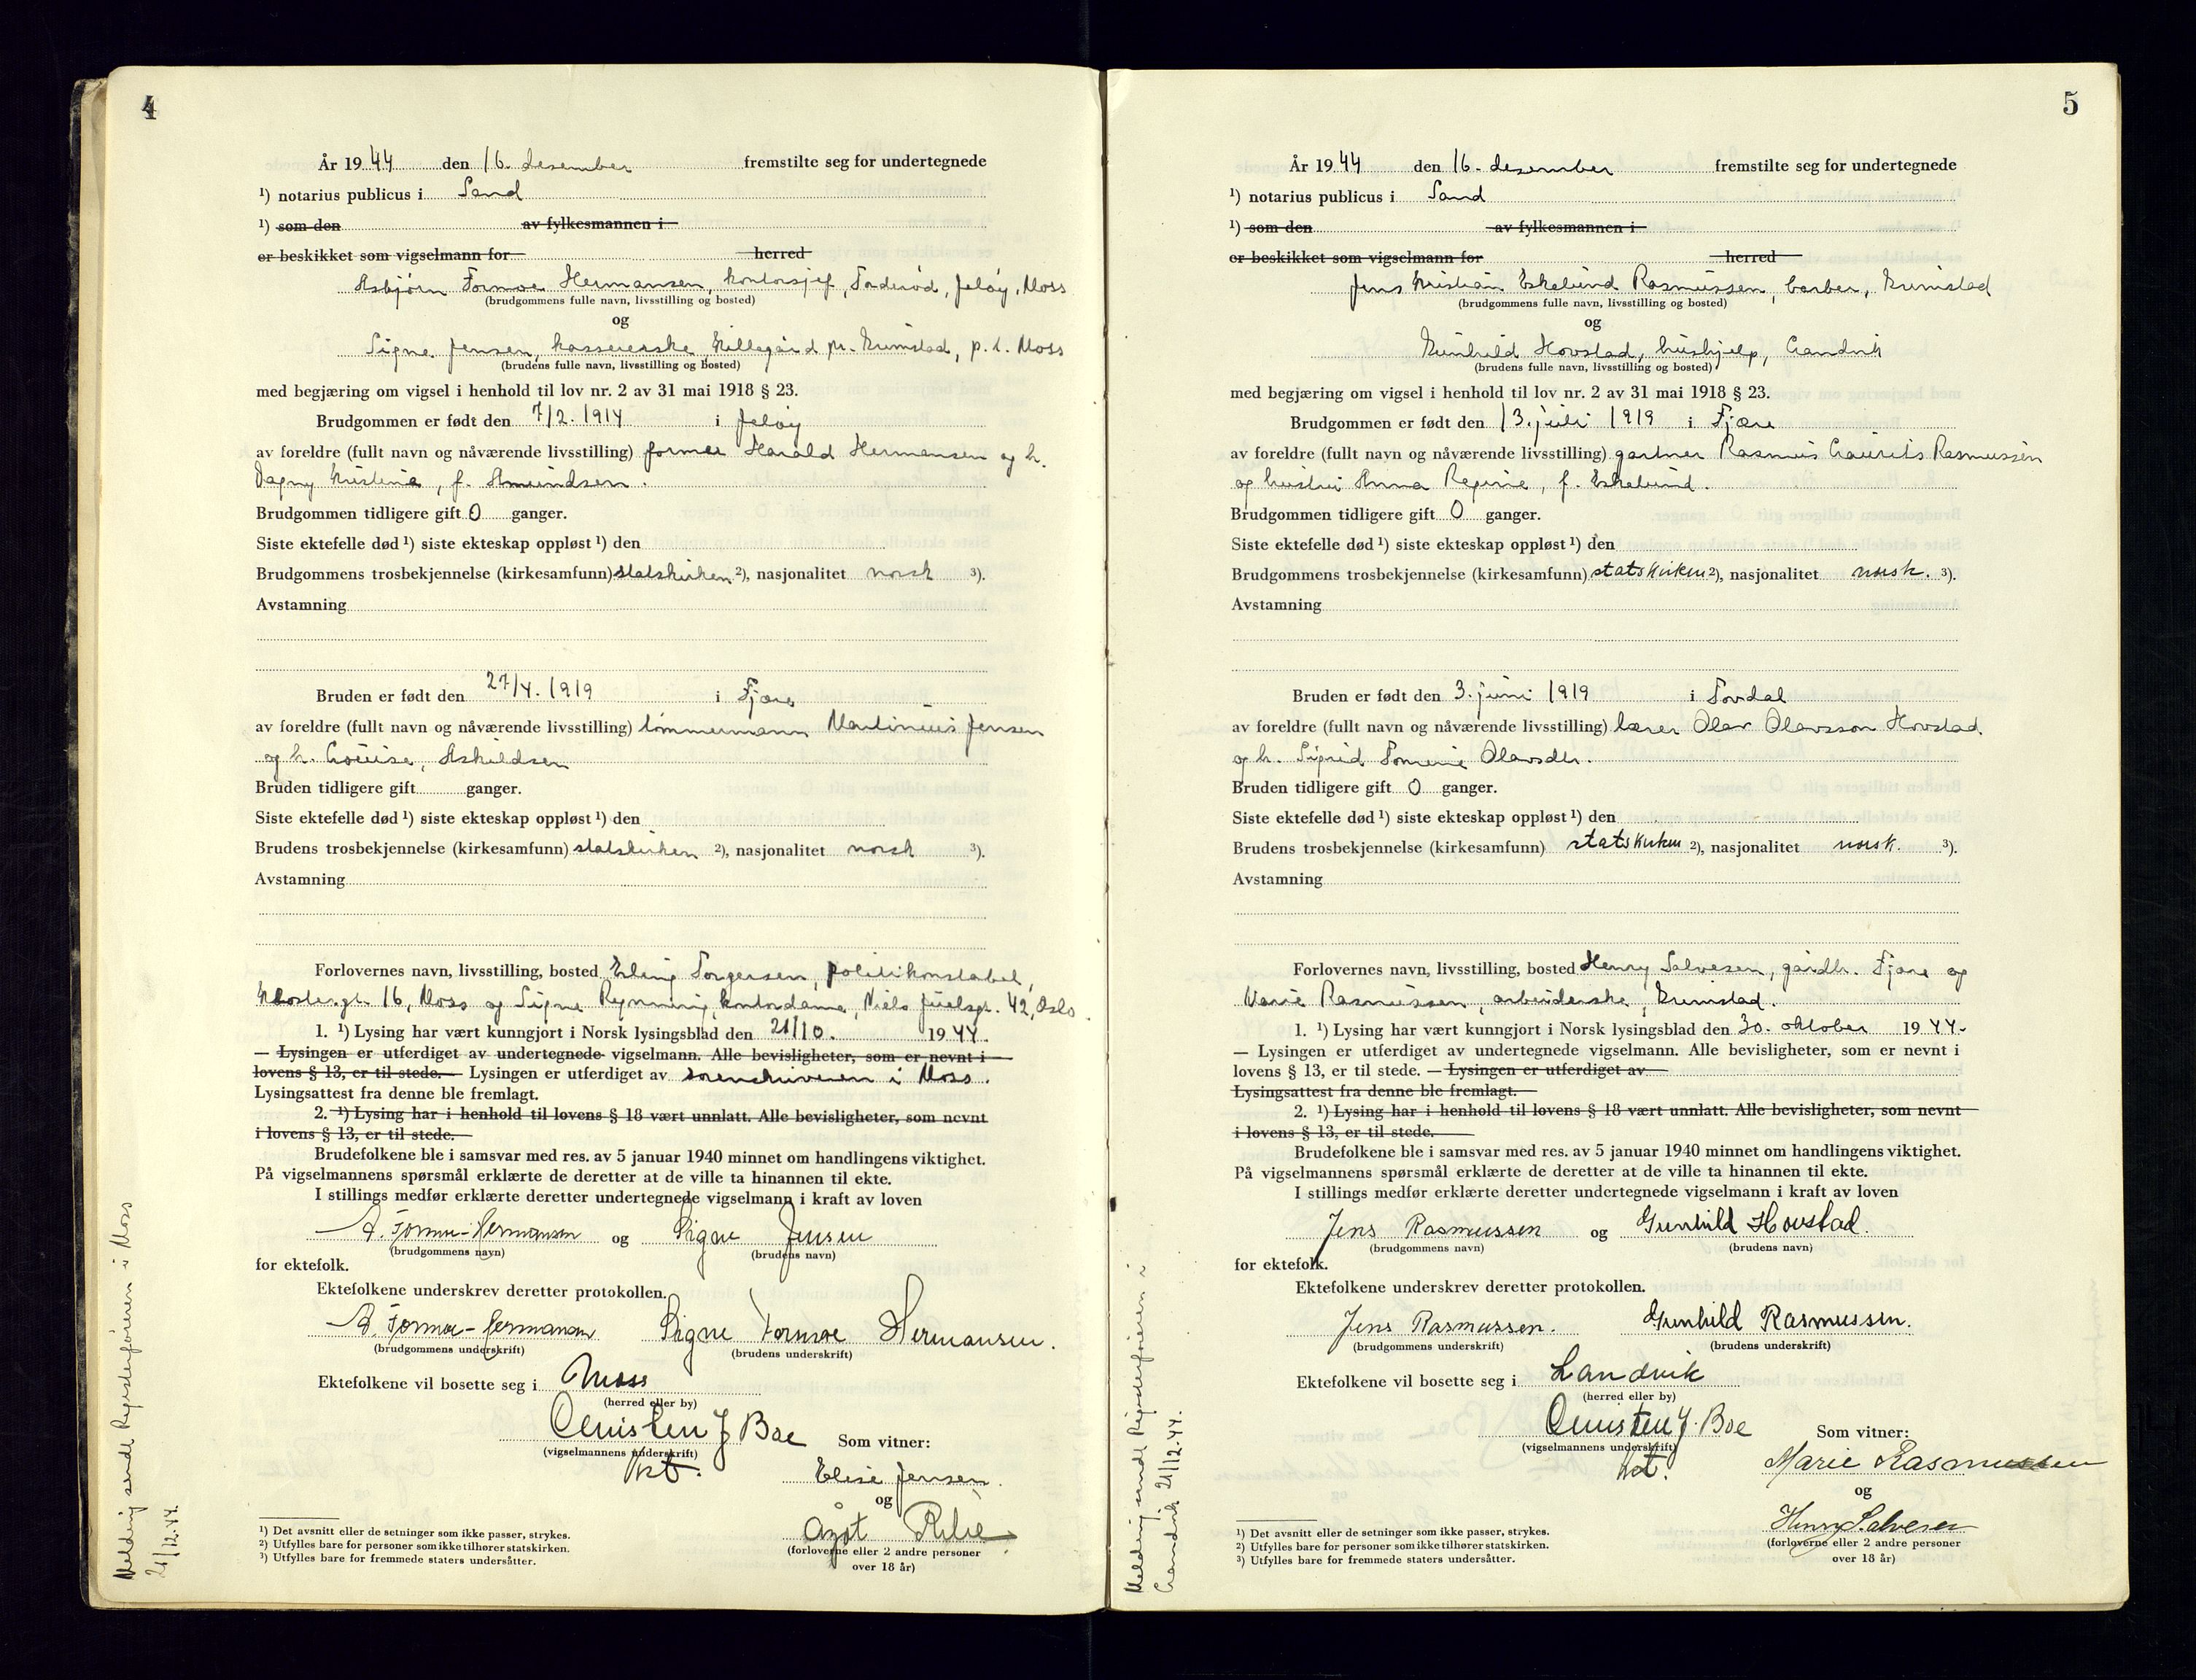 4
År 19 44 den 16. desember fremstilte seg for undertegnede
¹) notarius publicus i Sand
¹) som den av fylkesmannen i
er beskikket som vigselmann for herred
Asbjørn Formoe Hermansen, kontorsjef, Torderød, Jeløy, Moss
(brudgommens fulle navn, livsstilling og bosted)
og
Signe Jensen, kassererske, Killegård pr. Grimstad, p.t. Moss
(brudens fulle navn, livsstilling og bosted)
med begjæring om vigsel i henhold til lov nr. 2 av 31 mai 1918 § 23.
Brudgommen er født den 7/2. 1914 i Jeløy
av foreldre (fullt navn og nåværende livsstilling) former Harald Hermansen og h.
Dagny Kristine, f. Amundsen.
Brudgommen tidligere gift 0 ganger.
Siste ektefelle død ¹) siste ekteskap oppløst ¹) den
Brudgommens trosbekjennelse (kirkesamfunn) statskirken ²), nasjonalitet norsk ³).
Avstamning
Bruden er født den 27/4. 1919 i Fjære
av foreldre (fullt navn og nåværende livsstilling) tømmermann Martinius Jensen
og h. Louise, Askildsen
Bruden tidligere gift ganger.
Siste ektefelle død ¹) siste ekteskap oppløst ¹) den
Brudens trosbekjennelse (kirkesamfunn) statskirken ²), nasjonalitet norsk ³).
Avstamning
Forlovernes navn, livsstilling, bosted Erling Torgersen, politikonstabel,
Klostergt. 16, Moss og Signe Rynning, kontordame, Niels Juelsgt. 42, Oslo.
1. ¹) Lysing har vært kunngjort i Norsk lysingsblad den 21/10. 19 44.
— Lysingen er utferdiget av undertegnede vigselmann. Alle bevisligheter, som er nevnt i
lovens § 13, er til stede. — Lysingen er utferdiget av sorenskriveren i Moss.
Lysingsattest fra denne ble fremlagt.
2. ¹) Lysing har i henhold til lovens § 18 vært unnlatt. Alle bevisligheter, som nevnt
i lovens § 13, er til stede.
Brudefolkene ble i samsvar med res. av 5 januar 1940 minnet om handlingens viktighet.
På vigselmannens spørsmål erklærte de deretter at de ville ta hinannen til ekte.
I stillings medfør erklærte deretter undertegnede vigselmann i kraft av loven
A. Formoe-Hermansen og Signe Jensen
(brudgommens navn) (brudens navn)
for ektefolk.
Ektefolkene underskrev deretter protokollen.
A. Formoe-Hermansen Signe Formoe Hermansen.
(brudgommens underskrift) (brudens underskrift)
Ektefolkene vil bosette seg i Moss
(herred eller by)
Christen J Boe Som vitner:
(vigselmannens underskrift)
kst. Elise Jensen.
og
Aagot Ribe
(forloverne eller 2 andre personer
over 18 år)
¹) Det avsnitt eller de setninger som ikke passer, strykes.
²) Utfylles bare for personer som ikke tilhører statskirken.
³) Utfylles bare for fremmede staters undersåtter.
Melding sendt Registerføreren i Moss
21/12.44.
5
År 19 44 den 16. desember fremstilte seg for undertegnede
¹) notarius publicus i Sand
¹) som den av fylkesmannen i
er beskikket som vigselmann for herred
Jens Kristian Eskelund Rasmussen, barber, Grimstad
(brudgommens fulle navn, livsstilling og bosted)
og
Gunhild Hovstad, hushjelp, Landvik
(brudens fulle navn, livsstilling og bosted)
med begjæring om vigsel i henhold til lov nr. 2 av 31 mai 1918 § 23.
Brudgommen er født den 13. juli 1919 i Fjære
av foreldre (fullt navn og nåværende livsstilling) gartner Rasmus Laurits Rasmussen
og hustru Anna Regine, f. Eskelund.
Brudgommen tidligere gift 0 ganger.
Siste ektefelle død ¹) siste ekteskap oppløst ¹) den
Brudgommens trosbekjennelse (kirkesamfunn) statskirken ²), nasjonalitet norsk. ³).
Avstamning
Bruden er født den 3. juni 1919 i Tovdal
av foreldre (fullt navn og nåværende livsstilling) lærer Olav Olavsson Hovstad
og h. Sigrid Tomine Olavsdtr.
Bruden tidligere gift 0 ganger.
Siste ektefelle død ¹) siste ekteskap oppløst ¹) den
Brudens trosbekjennelse (kirkesamfunn) statskirken ²), nasjonalitet norsk. ³).
Avstamning
Forlovernes navn, livsstilling, bosted Henry Salvesen, gårdbr. Fjære og
Marie Rasmussen, arbeiderske, Grimstad.
1. ¹) Lysing har vært kunngjort i Norsk lysingsblad den 30. oktober 19 44.
— Lysingen er utferdiget av undertegnede vigselmann. Alle bevisligheter, som er nevnt i
lovens § 13, er til stede. — Lysingen er utferdiget av
Lysingsattest fra denne ble fremlagt.
2. ¹) Lysing har i henhold til lovens § 18 vært unnlatt. Alle bevisligheter, som nevnt
i lovens § 13, er til stede.
Brudefolkene ble i samsvar med res. av 5 januar 1940 minnet om handlingens viktighet.
På vigselmannens spørsmål erklærte de deretter at de ville ta hinannen til ekte.
I stillings medfør erklærte deretter undertegnede vigselmann i kraft av loven
Jens Rasmussen og Gunhild Hovstad.
(brudgommens navn) (brudens navn)
for ektefolk.
Ektefolkene underskrev deretter protokollen.
Jens Rasmussen. Gunhild Rasmussen.
(brudgommens underskrift) (brudens underskrift)
Ektefolkene vil bosette seg i Landvik
(herred eller by)
Christen J. Boe Som vitner:
(vigselmannens underskrift)
kst. Marie Rasmussen
og
Henry Salvesen
(forloverne eller 2 andre personer
over 18 år)
¹) Det avsnitt eller de setninger som ikke passer, strykes.
²) Utfylles bare for personer som ikke tilhører statskirken.
³) Utfylles bare for fremmede staters undersåtter.
Melding sendt Registerføreren i
Landvik 21/12.44.